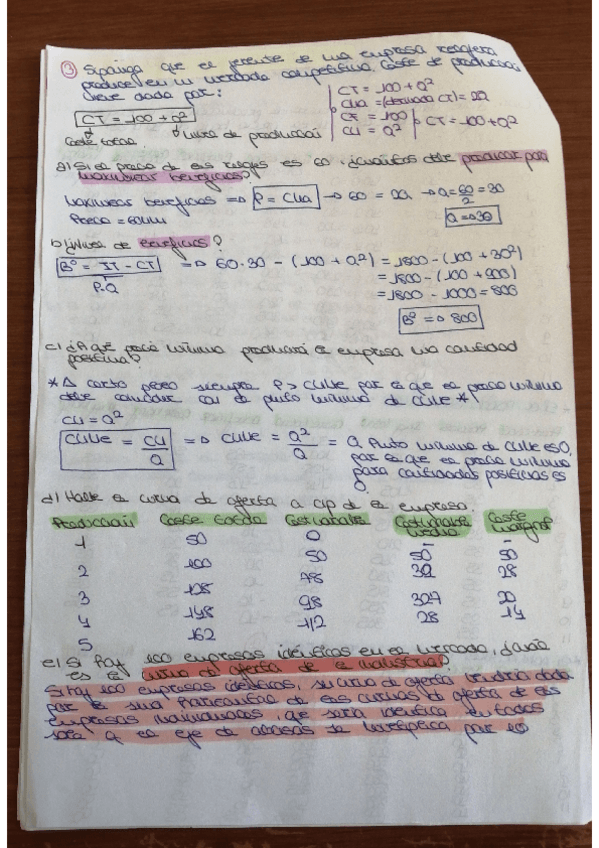 ③ Suponga que el gerente de una empresa relojera
produce en un mercado competitivo. Coste de producción
viene dada por:
CT = 100 + Q²
Coste total
nivel de producción
CT = 100 + Q²
CMa = (derivada CT) = 2Q
CF = 100
CV = Q²
CT = 100 + Q²
a) Si el precio de los relojes es 60, ¿cuántos debe producir para
maximizar beneficios?
Maximizar beneficios ⇒ P = CMa → 60 = 2Q → Q = 60/2 = 30
Precio = 60um
Q = 30
b) ¿Nivel de beneficios?
Bº = IT - CT ⇒ 60·30 - (100 + Q²) = 1800 - (100 + 30²)
P·Q
= 1800 - (100 + 900)
= 1800 - 1000 = 800
Bº ⇒ 800
c) ¿A qué precio mínimo producirá la empresa una cantidad
positiva?
* A corto plazo siempre P > CVMe por lo que el precio mínimo
debe coincidir con el punto mínimo de CVMe *
CV = Q²
CVMe = CV/Q ⇒ CVMe = Q²/Q = Q. Punto mínimo de CVMe es 0,
por lo que el precio mínimo
para cantidades positivas es
0
d) Halle la curva de oferta a c/p de la empresa.
Producción Coste total Cost variable Cost variable medio Coste marginal
1 50 0 - -
50 50 50
2 100 78 39 28
3 128 98 20
4 148 112 28 14
5 162
e) Si hay 100 empresas idénticas en el mercado, ¿cuál
es la curva de oferta de la industria?
Si hay 100 empresas idénticas, su curva de oferta vendría dada
por la suma horizontal de las curvas de oferta de las
empresas individuales, que sería idéntica en todos
solo q el eje de abscisas se multiplica por 100